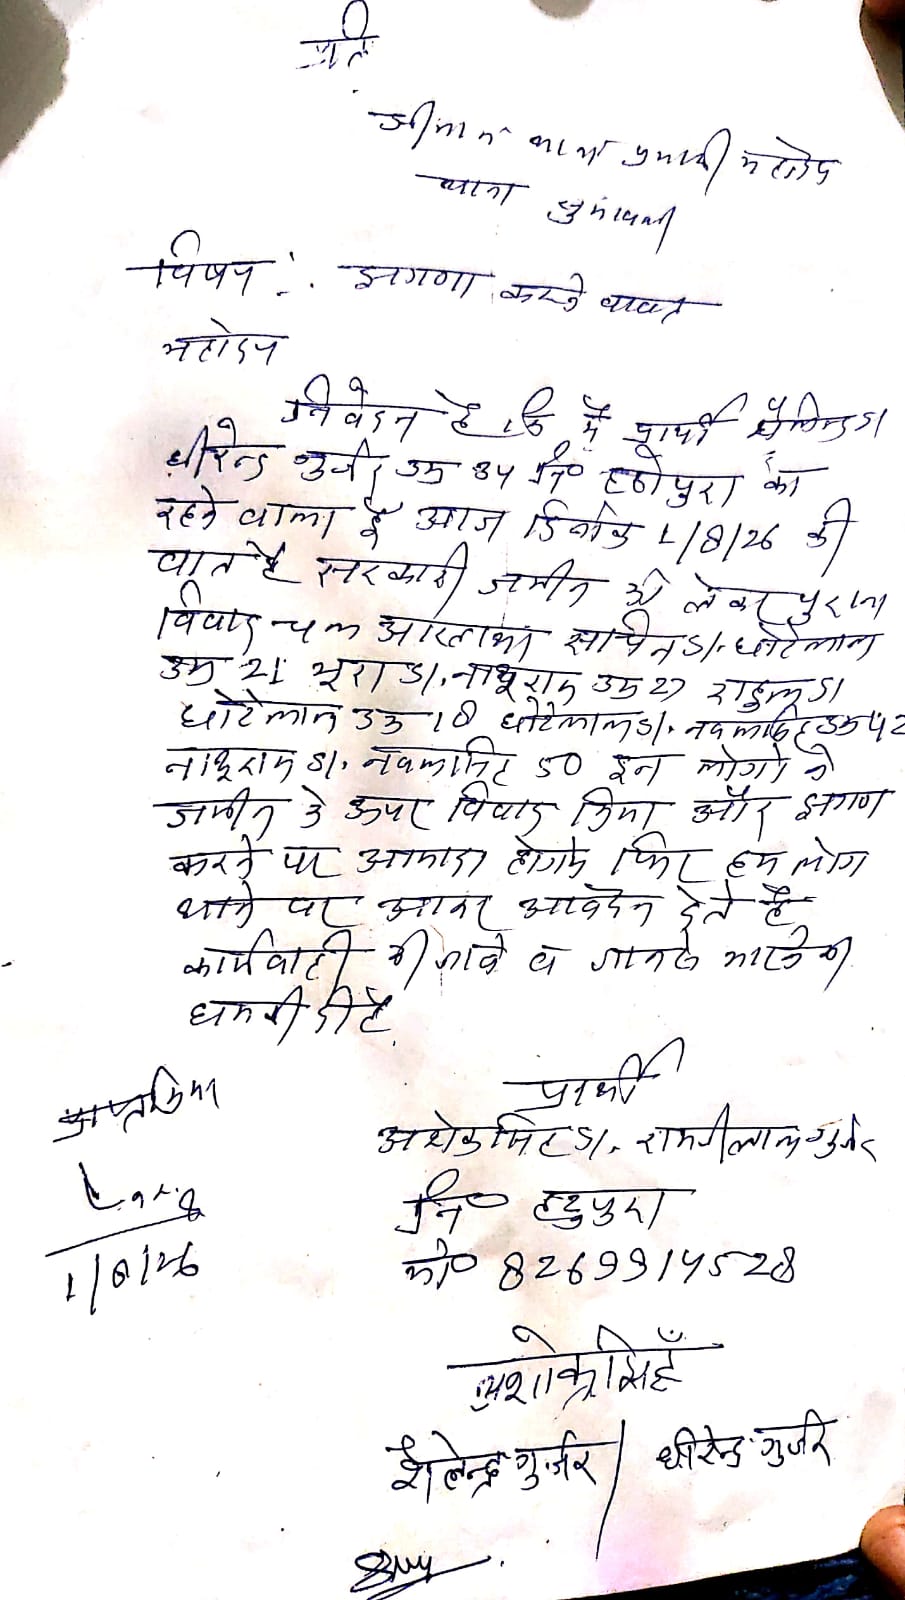 प्रति
श्रीमान थाना प्रभारी महोदय
थाना
विषय :. झगणा करने वावत
महोदय
निवेदन है कि मैं प्रार्थी S/
धीरेन्द्र गुर्जर उम्र 34 नि० हठीपुरा का
रहने वाला हूँ आज दिनांक 1/8/26 की
वात है सरकारी जमीन को लेकर पुराना
विवाद चल आरहा सचिन S/. छोटेलाल
उम्र 21 भूरा S/. नाथूराम उम्र 27 राहुल S/
छोटेलाल उम्र 18 छोटेलाल S/. नवलसिंह उम्र 42
नाथूराम S/. नवलसिंह 50 इन लोगो ने
जमीन के ऊपर विवाद किया और झगणा
करने पर आमादा होगये फिर हम लोग
थाने पर आकर आवेदन देते है
कार्यवाही की जावे व जानसे मारने की
धमकी दी है
प्रार्थी
अशोक सिंह S/. रामजीलाल गुर्जर
नि० हदुपुरा
मो० 8269914528
प्राप्त किया
1/8/26
अशोक सिहँ
शैलेन्द्र गुर्जर / धीरेन्द्र गुर्जर